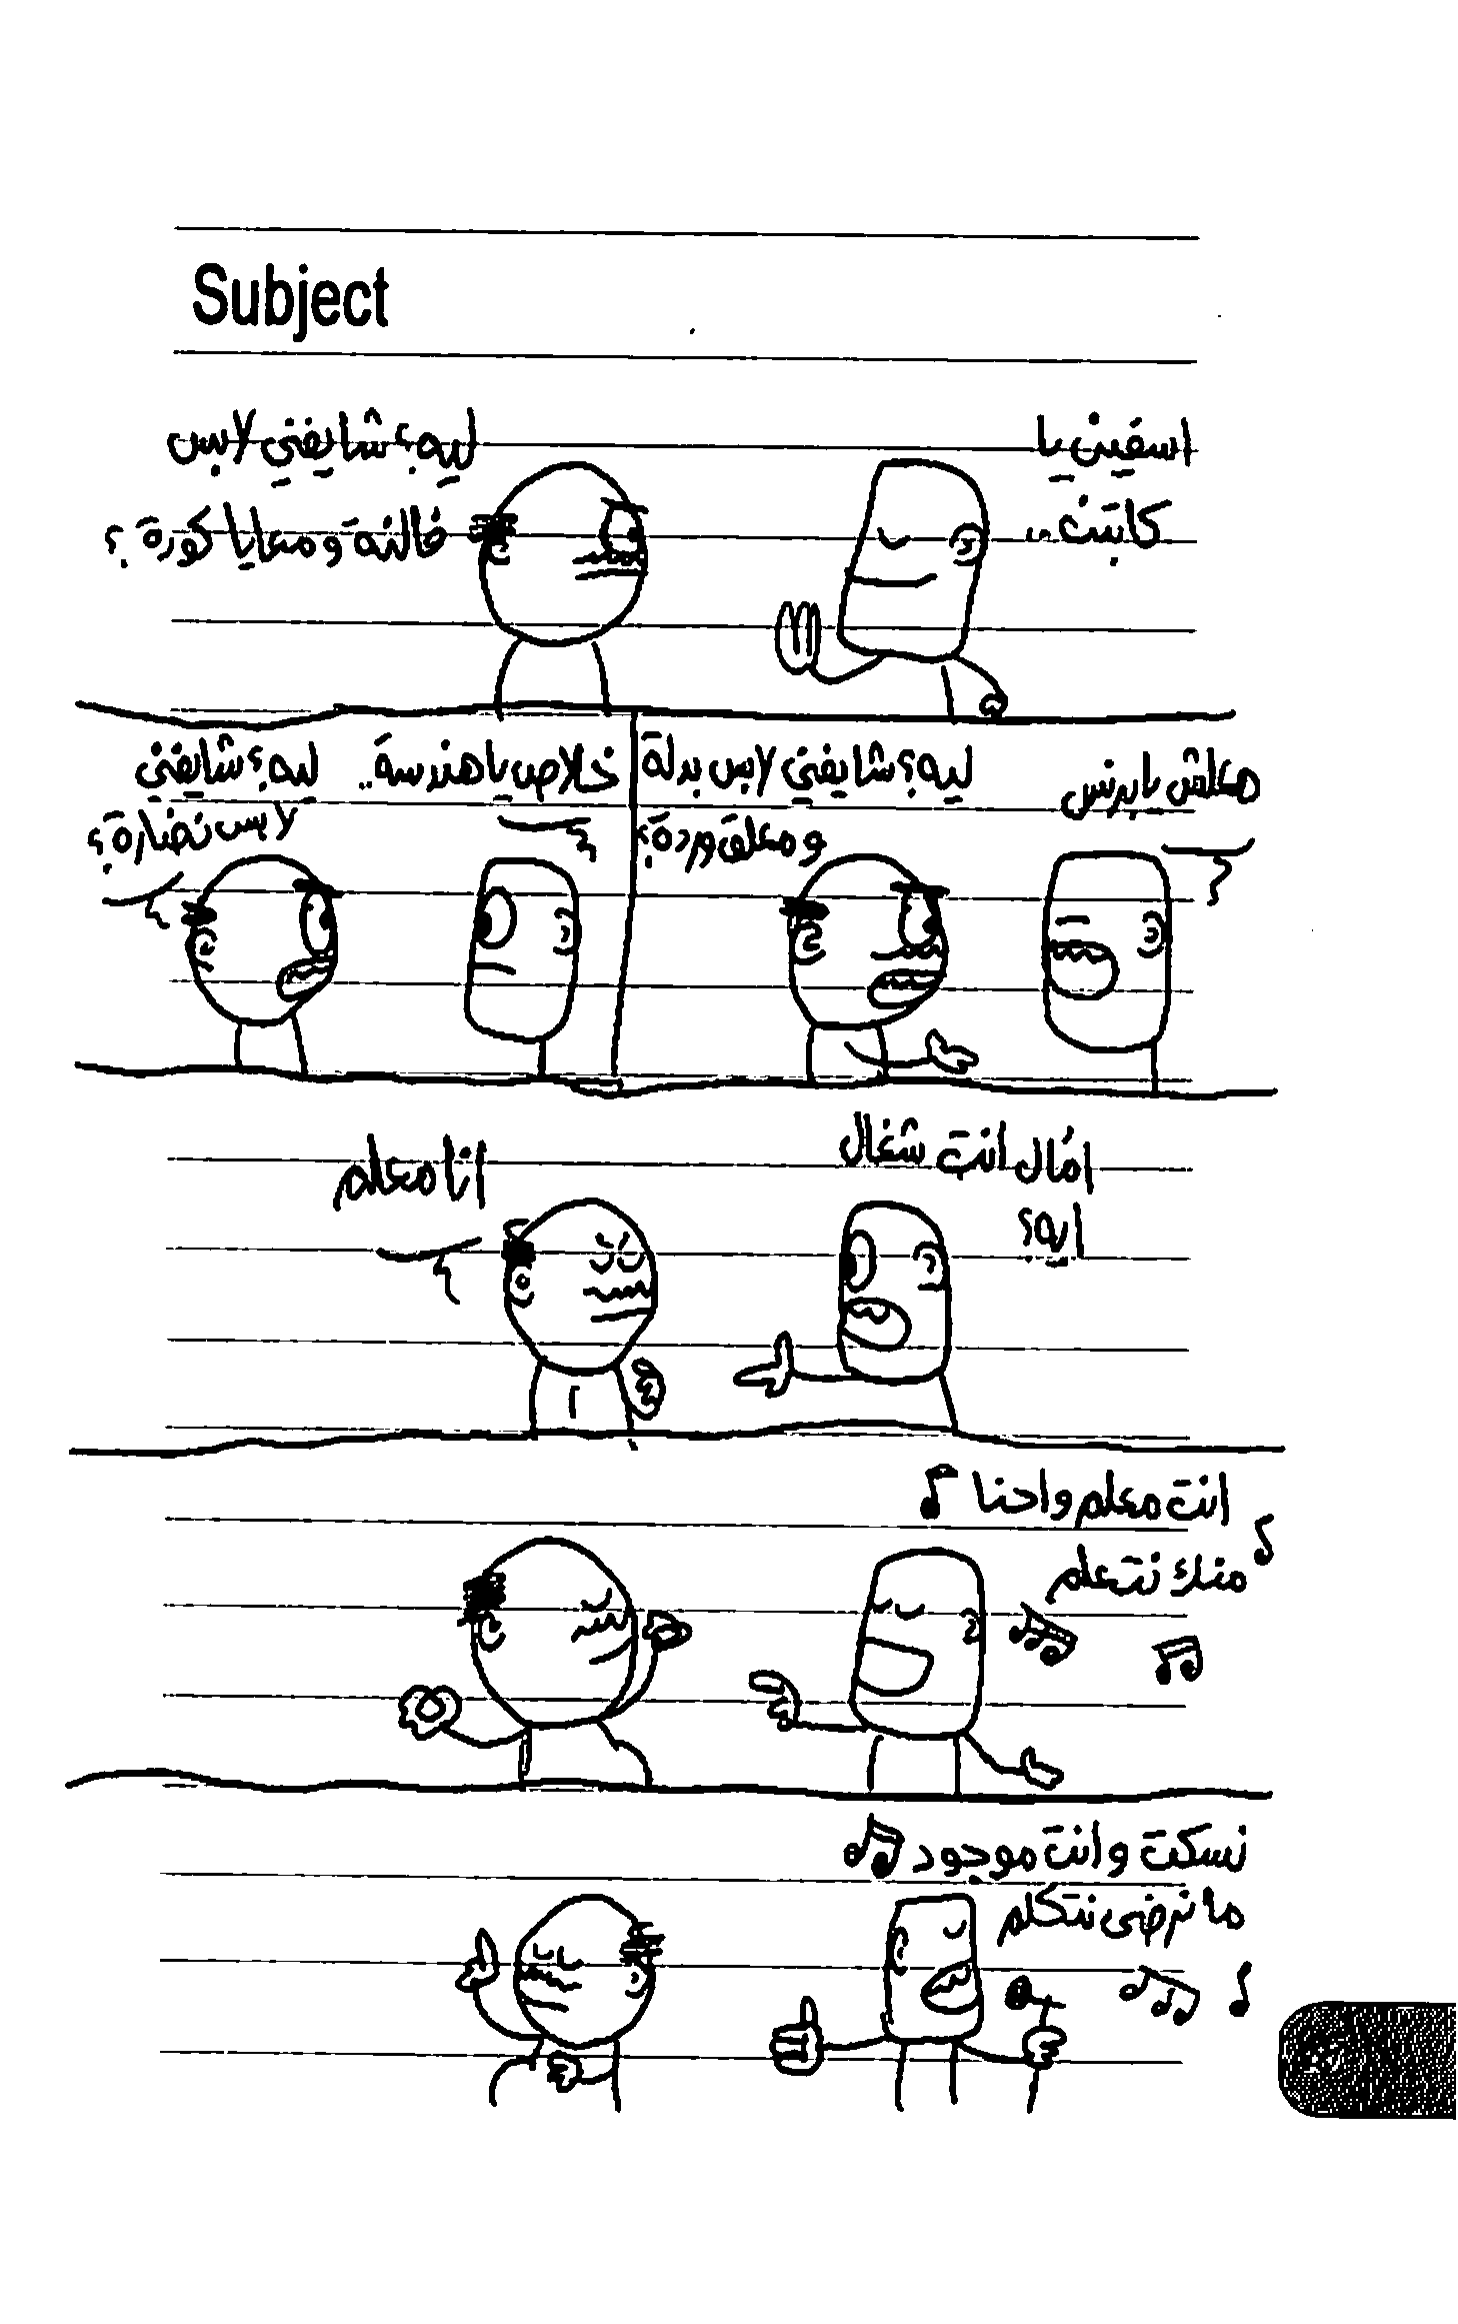 Subject
اسفين يا
كابتن..
ليه؟ شايفني لابس
فالنة ومعايا كورة؟
معلش يا برنس
ليه؟ شايفني لابس بدلة
ومعلق وردة؟
خلاص يا هندسة..
ليه؟ شايفني
لابس نضارة؟
امال انت شغال
ايه؟
انا معلم
انت معلم واحنا
منك نتعلم
نسكت وانت موجود
ما نرضى نتكلم